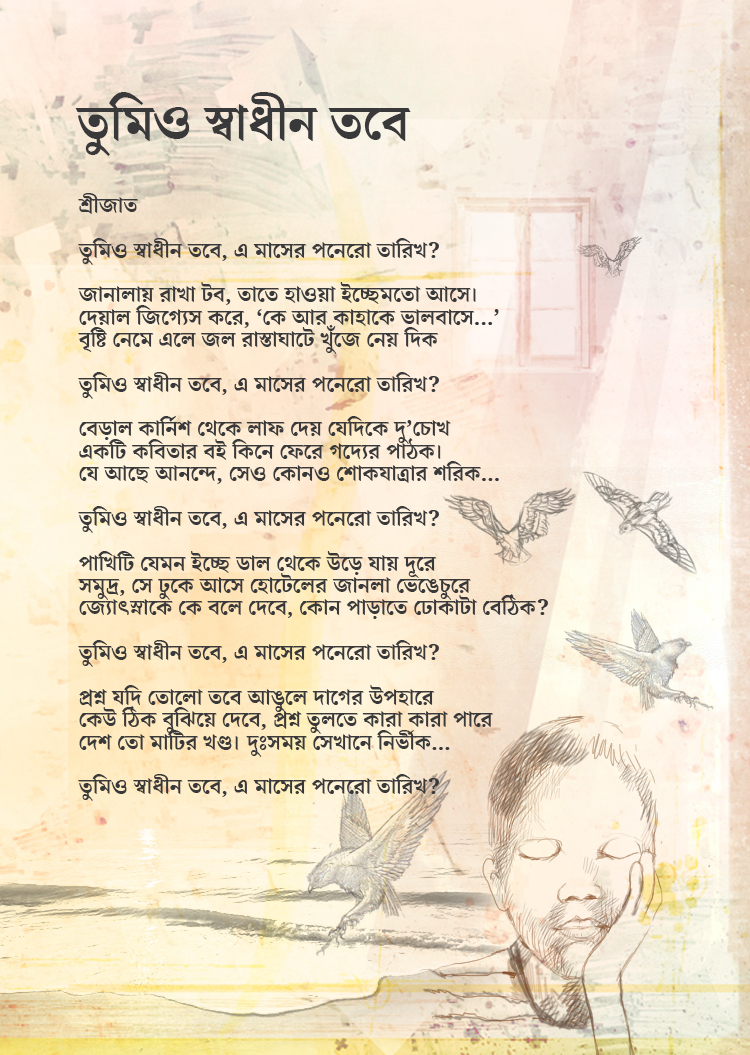 তুমিও স্বাধীন তবে
শ্রীজাত
তুমিও স্বাধীন তবে, এ মাসের পনেরো তারিখ?
জানালায় রাখা টব, তাতে হাওয়া ইচ্ছেমতো আসে।
দেয়াল জিগ্যেস করে, ‘কে আর কাহাকে ভালবাসে...’
বৃষ্টি নেমে এলে জল রাস্তাঘাটে খুঁজে নেয় দিক
তুমিও স্বাধীন তবে, এ মাসের পনেরো তারিখ?
বেড়াল কার্নিশ থেকে লাফ দেয় যেদিকে দু’চোখ
একটি কবিতার বই কিনে ফেরে গদ্যের পাঠক।
যে আছে আনন্দে, সেও কোনও শোকযাত্রার শরিক...
তুমিও স্বাধীন তবে, এ মাসের পনেরো তারিখ?
পাখিটি যেমন ইচ্ছে ডাল থেকে উড়ে যায় দূরে
সমুদ্র, সে ঢুকে আসে হোটেলের জানলা ভেঙেচুরে
জ্যোৎস্নাকে কে বলে দেবে, কোন পাড়াতে ঢোকাটা বেঠিক?
তুমিও স্বাধীন তবে, এ মাসের পনেরো তারিখ?
প্রশ্ন যদি তোলো তবে আঙুলে দাগের উপহারে
কেউ ঠিক বুঝিয়ে দেবে, প্রশ্ন তুলতে কারা কারা পারে
দেশ তো মাটির খণ্ড। দুঃসময় সেখানে নির্ভীক...
তুমিও স্বাধীন তবে, এ মাসের পনেরো তারিখ?